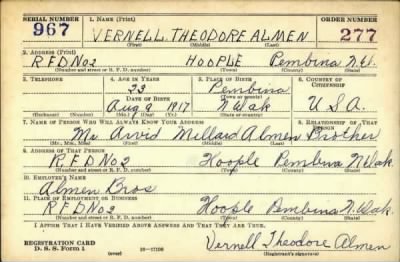 SERIAL NUMBER 1. NAME (Print) ORDER NUMBER
967 VERNELL THEODORE ALMEN 277
(First) (Middle) (Last)
2. ADDRESS (Print)
RFD No 2 HOOPLE Pembina N.D.
(Number and street or R. F. D. number) (Town) (County) (State)
3. TELEPHONE 4. AGE IN YEARS 5. PLACE OF BIRTH 6. COUNTRY OF CITIZENSHIP
23 Pembina
DATE OF BIRTH (Town or county)
Aug 9 1917 N. Dak U.S.A.
(Exchange) (Number) (Mo.) (Day) (Yr.) (State or country)
7. NAME OF PERSON WHO WILL ALWAYS KNOW YOUR ADDRESS 8. RELATIONSHIP OF THAT PERSON
Mr Arvid Millard Almen Brother
(Mr., Mrs., Miss) (First) (Middle) (Last)
9. ADDRESS OF THAT PERSON
R.F.D No 2 Hoople Pembina N. Dak.
(Number and street or R. F. D. number) (Town) (County) (State)
10. EMPLOYER'S NAME
Almen Bros
11. PLACE OF EMPLOYMENT OR BUSINESS
RFD No 2 Hoople Pembina N. Dak.
(Number and street or R. F. D. number) (Town) (County) (State)
I AFFIRM THAT I HAVE VERIFIED ABOVE ANSWERS AND THAT THEY ARE TRUE.
REGISTRATION CARD
D. S. S. Form 1 16-17105 Vernell Theodore Almen
(Registrant's signature)